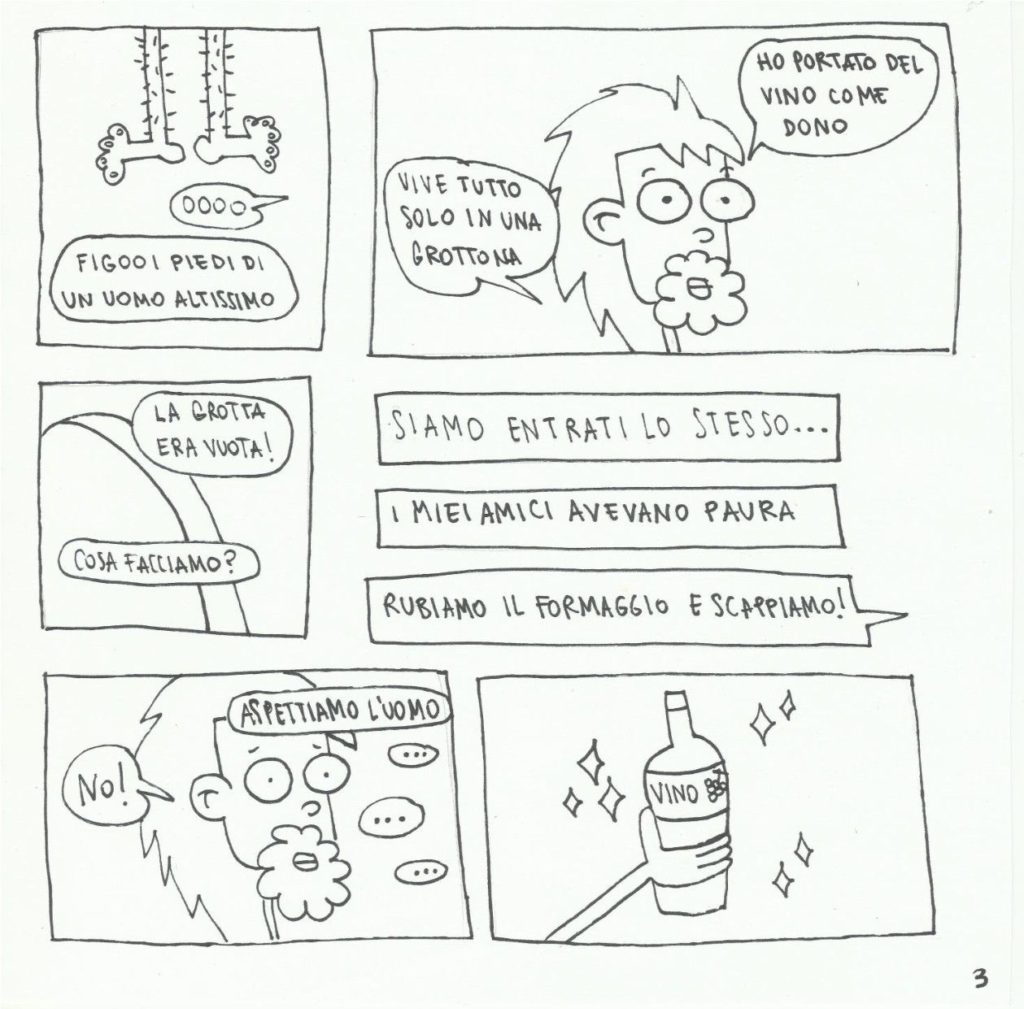 OOOO
FIGOOI PIEDI DI
UN UOMO ALTISSIMO
HO PORTATO DEL
VINO COME
DONO
VIVE TUTTO
SOLO IN UNA
GROTTONA
LA GROTTA
ERA VUOTA!
COSA FACCIAMO?
SIAMO ENTRATI LO STESSO...
I MIEI AMICI AVEVANO PAURA
RUBIAMO IL FORMAGGIO E SCAPPIAMO!
ASPETTIAMO L'UOMO
NO!
...
...
...
VINO
3